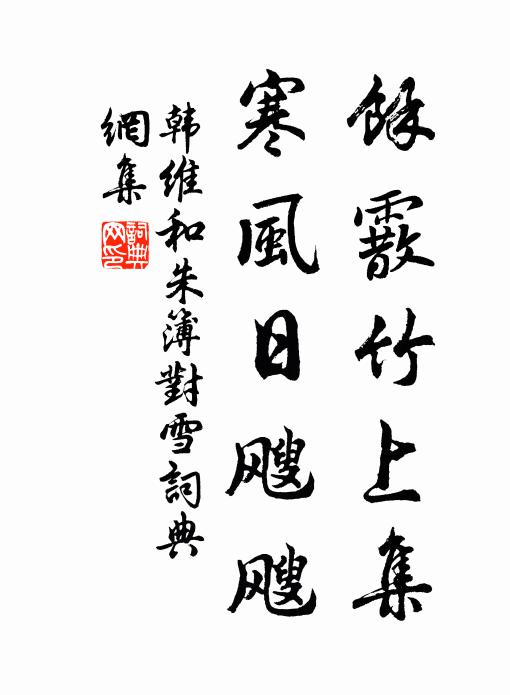 餘霰竹上集
寒風日飕飕
韩维和朱簿對雪詞典
網集
詞典網印